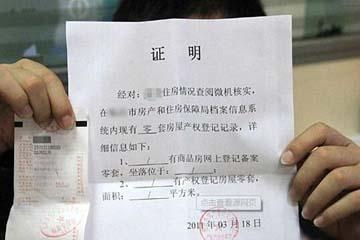 证明
经对:住房情况查阅微机核实,
在市房产和住房保障局档案信息系
统内现有 零 套房屋产权登记记录,详
细信息如下:
1、/有商品房网上登记备案
零套,坐落位于:/;
2、/有产权登记房屋零套,
面积:/平方米。
点击查看源网页
2011年03月18日